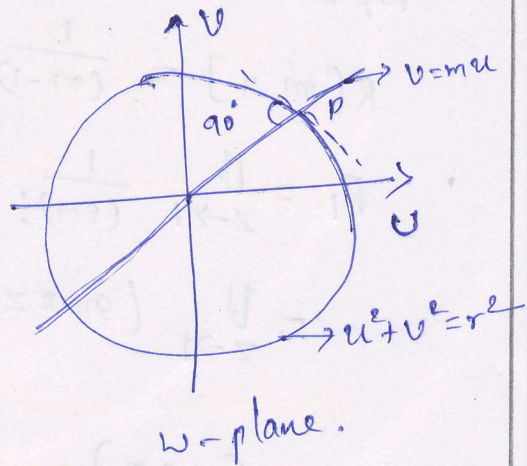 v
v=mu
90°
P
u
u²+v²=r²
w-plane.